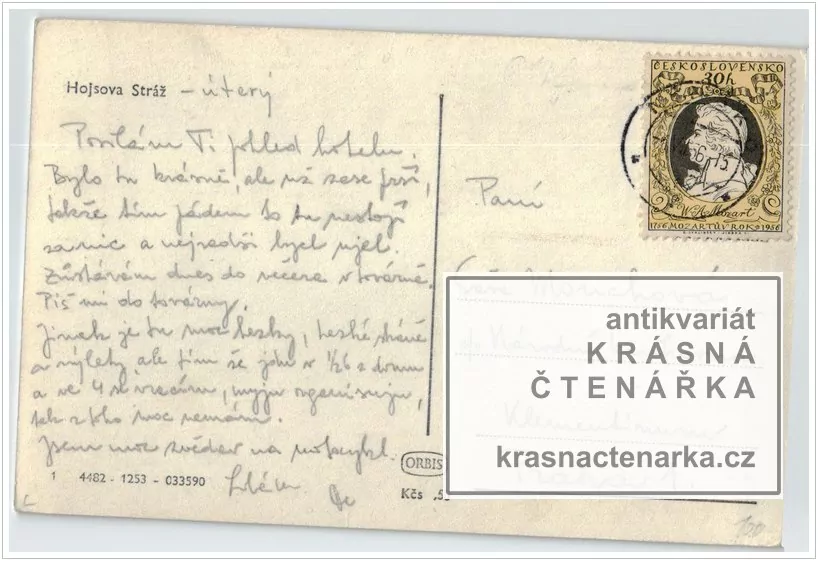 Hojsova Stráž – úterý
Posílám Ti pohled hotelu.
Bylo tu krásně, ale už zase prší,
takže tím pádem to tu nestojí
za nic a nejradši bych ujel.
Zůstávám dnes do večera v továrně.
Piš mi do továrny.
Jinak je tu moc hezky, hezké stráně
a výlety ale tím že jdu v 1/26 z domu
a ve 4 se vracím, myju
tak z toho moc nemám.
Jsem moc zvědav na motocykl.
1 4482 - 1253 - 033590
ORBIS
Kčs
ČESKOSLOVENSKO
30h
W.A. Mozart
1756 MOZARTŮV ROK 1956
Paní
Klementinum
Praha 1.
antikvariát
KRÁSNÁ
ČTENÁŘKA
krasnactenarka.cz
100